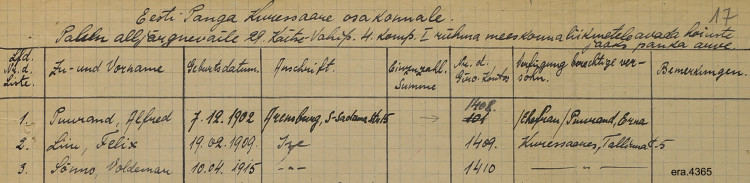 17
Eesti Panga Kuressaare osakonnale.
Palun alljärgnevaile 29. Kaitse-Vahip. 4. komp. I rühma meeskonna liikmetele avada hoiuste
jaoks panka arve.
Lfd. Nr. d. Liste. Zu- und Vorname Geburtsdatum. Anschrift. Einzuzahl. Summe Nr. d. Giro-Kontos Verfügung berechtige Person. Bemerkungen.
1. Puurand, Alfred 7.12.1902 Arensburg, S-Sadama 15 → 1408. 101 /Ehefrau/ Puurand, Erna
2. Liiv, Felix 19.02.1909. 1409. Kuressaares, Tallinna t. 5
3. Sõnno, Voldemar 10.04.1915 -"- 1410 -"-
era.4365